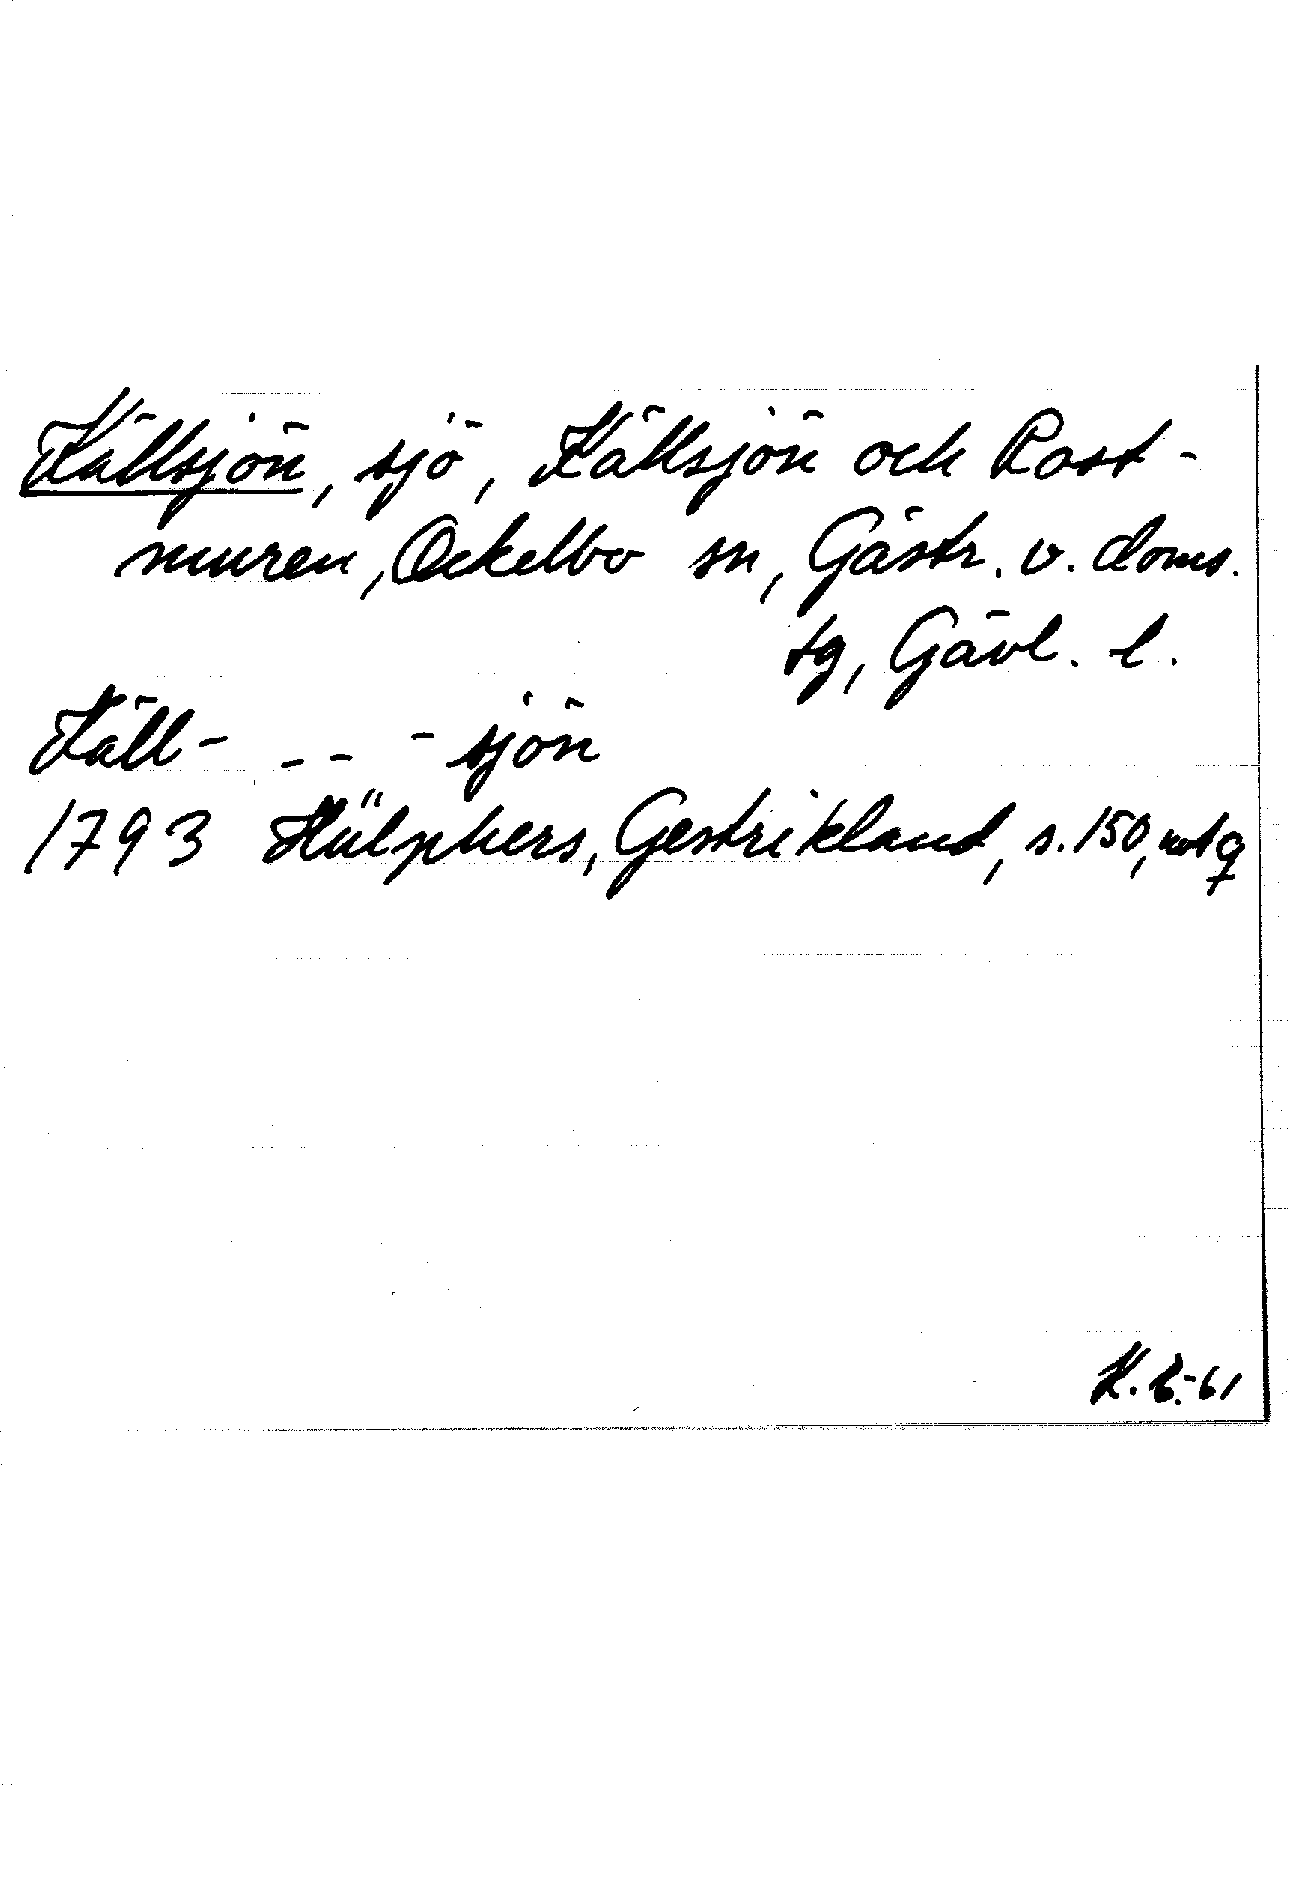 Källsjön, sjö, Källsjön och Rost-
muren, Ockelbo sn, Gästr. v. doms.
tg, Gävl. l.
Käll- - - - sjön
1793 Hülphers, Gestrikland, s. 150, not q
K. B.-61